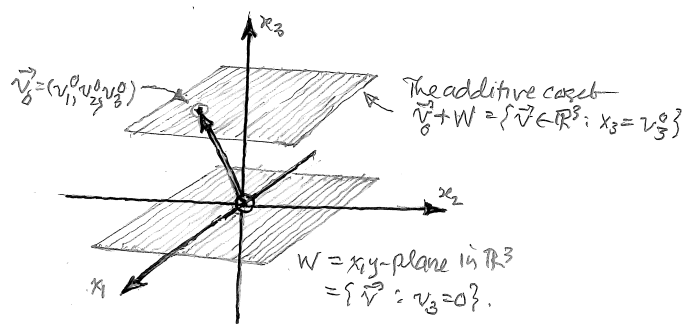 x₃
v⃗₀=(v₁⁰,v₂⁰,v₃⁰)
The additive coset
v⃗₀+W={v⃗∈ℝ³: x₃=v₃⁰}
x₂
x₁
W = x,y-plane in ℝ³
={v⃗ : v₃=0}.